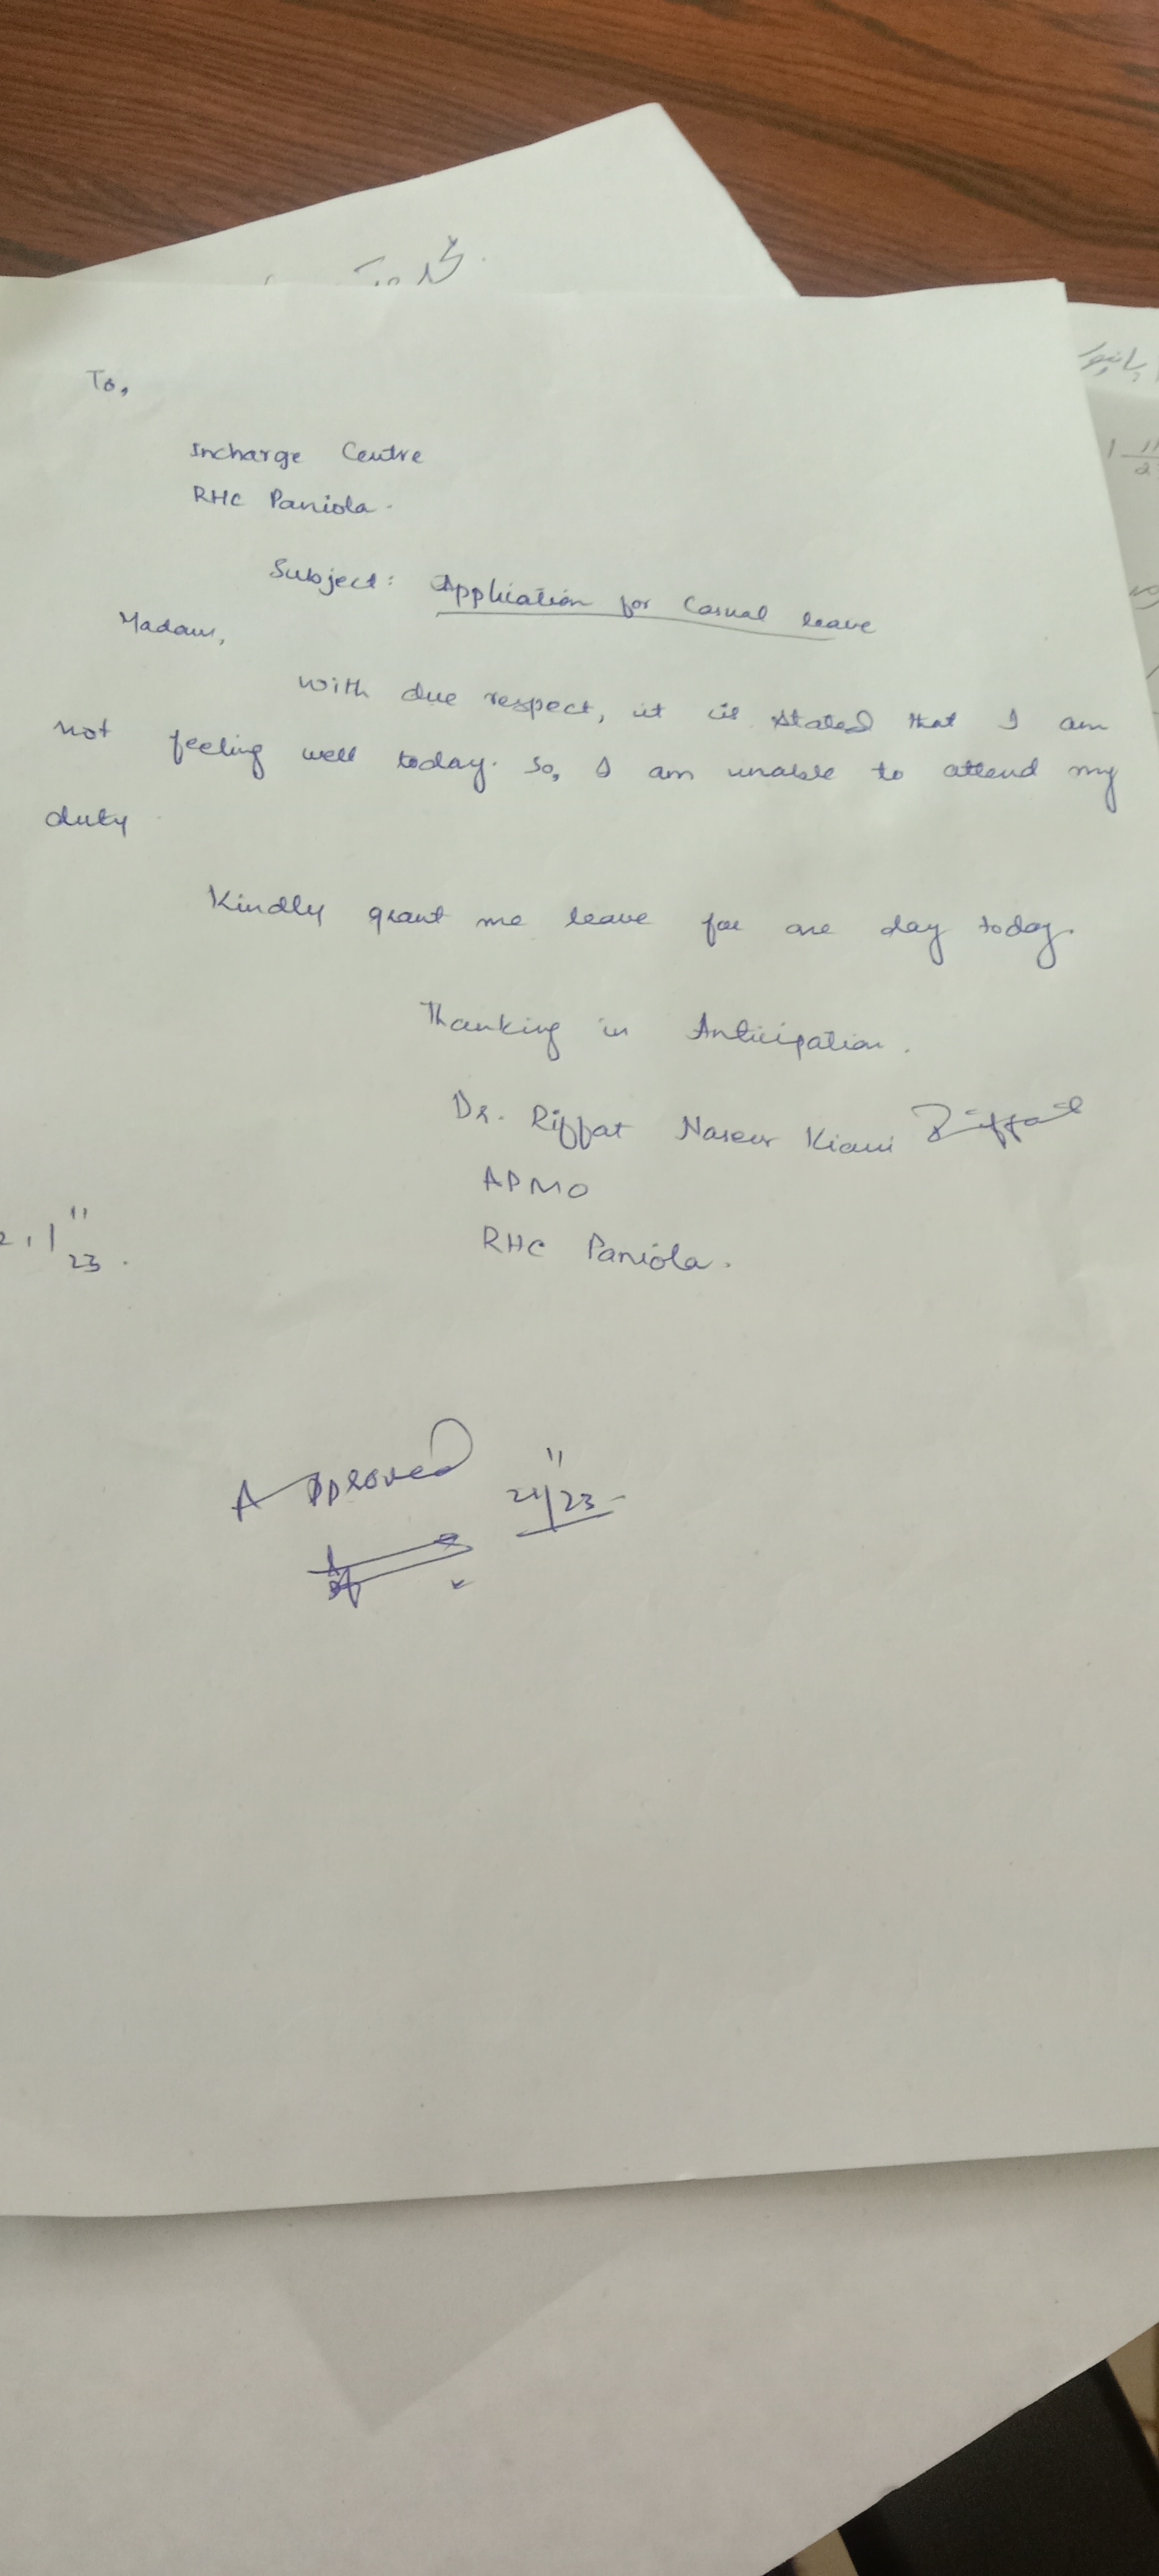 To,
Incharge Centre
RHC Paniola.
Subject: Application for Casual leave
Madam,
With due respect, it is stated that I am
not feeling well today. So, I am unable to attend my
duty.
Kindly grant me leave for one day today.
Thanking in Anticipation.
Dr. Riffat Naseer Kiani Riffat
APMO
RHC Paniola.
11
23.
Approved
11
21/23